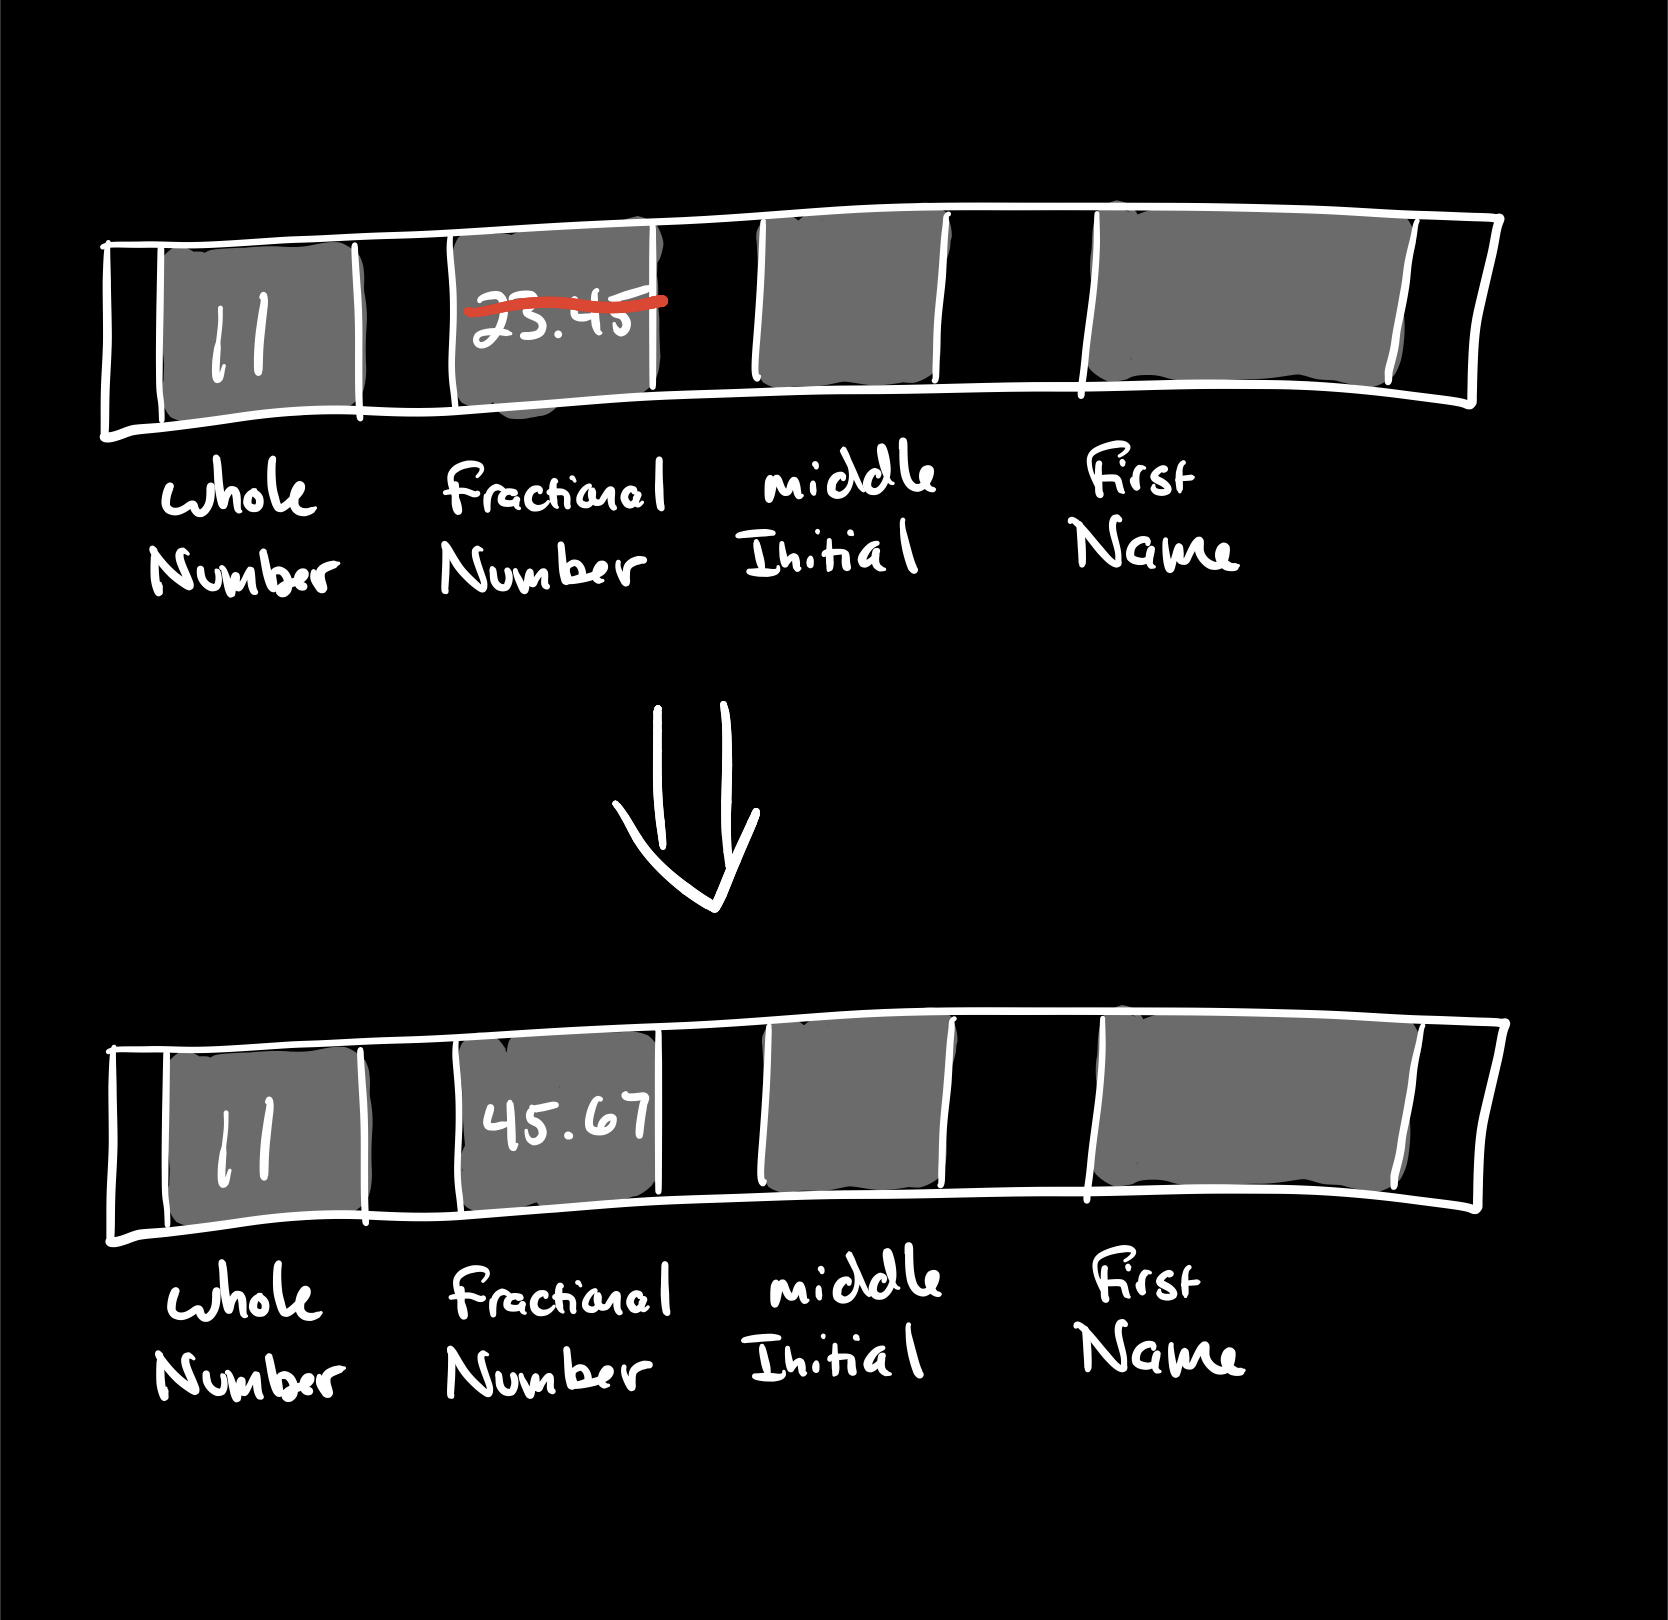 11
23.45
Whole
Number
Fractional
Number
middle
Initial
First
Name
11
45.67
Whole
Number
Fractional
Number
middle
Initial
First
Name